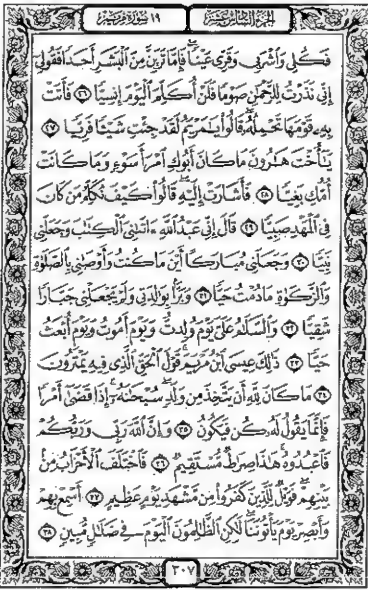 الجزء السادس عشر
١٩ سورة مريم
فَكُلِي وَٱشْرَبِي وَقَرِّي عَيْنًا ۖ فَإِمَّا تَرَيِنَّ مِنَ ٱلْبَشَرِ أَحَدًا فَقُولِيٓ
إِنِّي نَذَرْتُ لِلرَّحْمَٰنِ صَوْمًا فَلَنْ أُكَلِّمَ ٱلْيَوْمَ إِنسِيًّا ٢٦ فَأَتَتْ
بِهِۦ قَوْمَهَا تَحْمِلُهُۥ ۖ قَالُوا۟ يَٰمَرْيَمُ لَقَدْ جِئْتِ شَيْـًٔا فَرِيًّا ٢٧
يَٰٓأُخْتَ هَٰرُونَ مَا كَانَ أَبُوكِ ٱمْرَأَ سَوْءٍ وَمَا كَانَتْ
أُمُّكِ بَغِيًّا ٢٨ فَأَشَارَتْ إِلَيْهِ ۖ قَالُوا۟ كَيْفَ نُكَلِّمُ مَن كَانَ
فِي ٱلْمَهْدِ صَبِيًّا ٢٩ قَالَ إِنِّي عَبْدُ ٱللَّهِ ءَاتَىٰنِيَ ٱلْكِتَٰبَ وَجَعَلَنِي
نَبِيًّا ٣٠ وَجَعَلَنِي مُبَارَكًا أَيْنَ مَا كُنتُ وَأَوْصَٰنِي بِٱلصَّلَوٰةِ
وَٱلزَّكَوٰةِ مَا دُمْتُ حَيًّا ٣١ وَبَرًّۢا بِوَٰلِدَتِي وَلَمْ يَجْعَلْنِي جَبَّارًا
شَقِيًّا ٣٢ وَٱلسَّلَٰمُ عَلَيَّ يَوْمَ وُلِدتُّ وَيَوْمَ أَمُوتُ وَيَوْمَ أُبْعَثُ
حَيًّا ٣٣ ذَٰلِكَ عِيسَى ٱبْنُ مَرْيَمَ ۚ قَوْلَ ٱلْحَقِّ ٱلَّذِي فِيهِ يَمْتَرُونَ
٣٤ مَا كَانَ لِلَّهِ أَن يَتَّخِذَ مِن وَلَدٍ ۖ سُبْحَٰنَهُۥٓ ۚ إِذَا قَضَىٰٓ أَمْرًا
فَإِنَّمَا يَقُولُ لَهُۥ كُن فَيَكُونُ ٣٥ وَإِنَّ ٱللَّهَ رَبِّي وَرَبُّكُمْ
فَٱعْبُدُوهُ ۚ هَٰذَا صِرَٰطٌ مُّسْتَقِيمٌ ٣٦ فَٱخْتَلَفَ ٱلْأَحْزَابُ مِنۢ
بَيْنِهِمْ ۖ فَوَيْلٌ لِّلَّذِينَ كَفَرُوا۟ مِن مَّشْهَدِ يَوْمٍ عَظِيمٍ ٣٧ أَسْمِعْ بِهِمْ
وَأَبْصِرْ يَوْمَ يَأْتُونَنَا ۖ لَٰكِنِ ٱلظَّٰلِمُونَ ٱلْيَوْمَ فِي ضَلَٰلٍ مُّبِينٍ ٣٨
٣٠٧